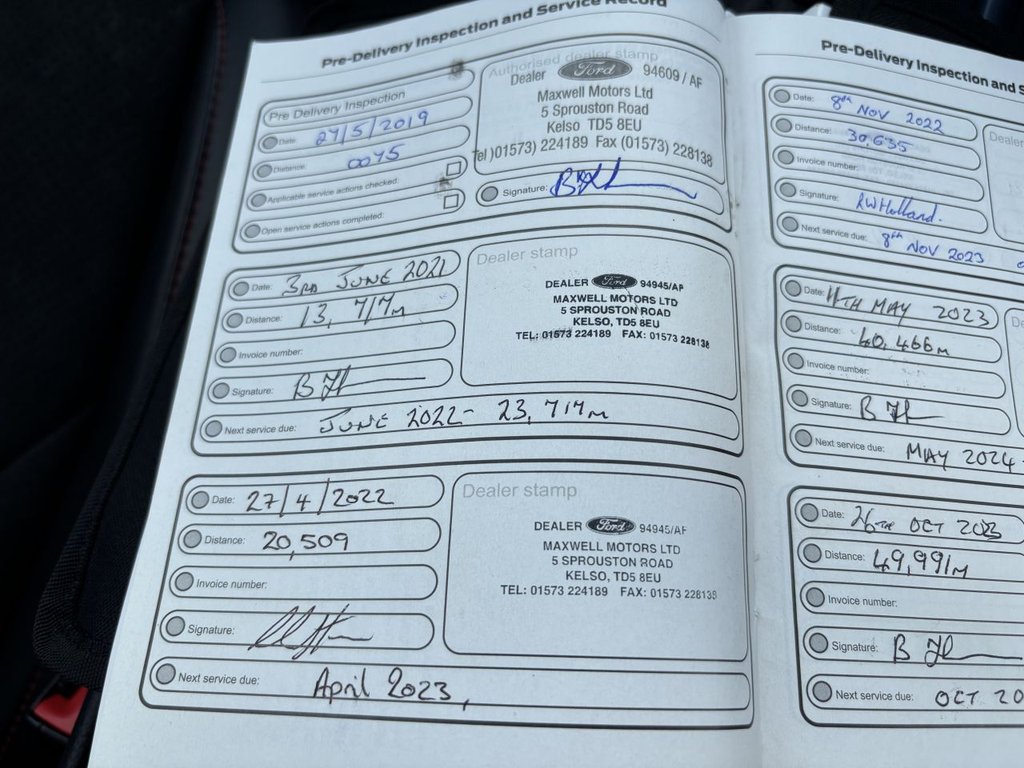 Pre-Delivery Inspection and Service Record
Pre Delivery Inspection
Date: 27/5/2019
Distance: 0075
Applicable service actions checked:
Open service actions completed:
Authorised dealer stamp
Dealer Ford 94609 / AF
Maxwell Motors Ltd
5 Sprouston Road
Kelso TD5 8EU
Tel )01573) 224189 Fax (01573) 228138
Signature:
Date: 3RD JUNE 2021
Distance: 13,717M
Invoice number:
Signature:
Next service due: JUNE 2022 - 23,717M
Dealer stamp
DEALER Ford 94945/AF
MAXWELL MOTORS LTD
5 SPROUSTON ROAD
KELSO, TD5 8EU
TEL: 01573 224189 FAX: 01573 228138
Date: 27/4/2022
Distance: 20,509
Invoice number:
Signature:
Next service due: April 2023,
Dealer stamp
DEALER Ford 94945/AF
MAXWELL MOTORS LTD
5 SPROUSTON ROAD
KELSO, TD5 8EU
TEL: 01573 224189 FAX: 01573 228138
Pre-Delivery Inspection and S
Date: 8th NOV 2022
Distance: 30,635
Invoice number:
Signature: RWHolland.
Next service due: 8th NOV 2023
Dealer
Date: 11TH MAY 2023
Distance: 40,466M
Invoice number:
Signature:
Next service due: MAY 2024-
Date: 26TH OCT 2023
Distance: 49,991M
Invoice number:
Signature:
Next service due: OCT 20